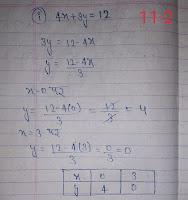 (i) 4x+3y = 12
11.2
3y = 12-4x
y = 12-4x/3
x=0 पर
y = 12-4(0)/3 = 12/3 = 4
x=3 पर
y = 12-4(3)/3 = 0/3 = 0
x 0 3
y 4 0